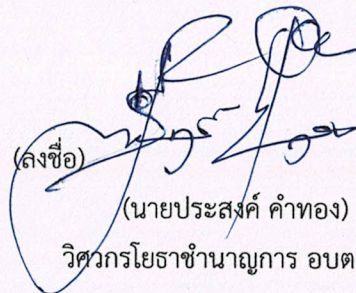 (ลงชื่อ)
(นายประสงค์ คำทอง)
วิศวกรโยธาชำนาญการ อบต